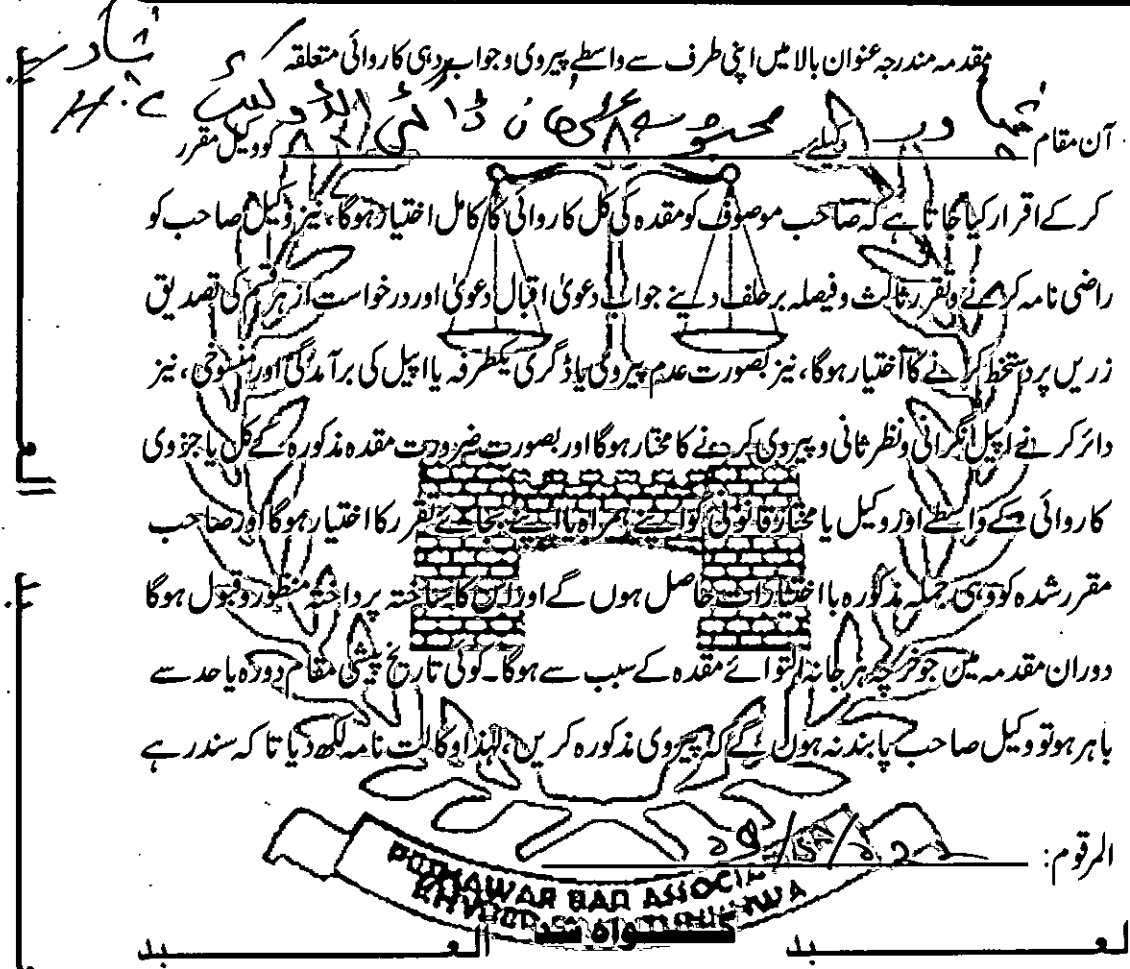 مقدمہ مندرجہ عنوان بالا میں اپنی طرف سے واسطے پیروی وجواب دہی کاروائی متعلقہ
H.C
آن مقام کیلئے کو وکیل مقرر
کر کے اقرار کیا جاتا ہے کہ صاحب موصوف کو مقدہ کی کل کاروائی کا کامل اختیار ہوگا، نیز وکیل صاحب کو
راضی نامہ کرنے وتقرر ثالث وفیصلہ برحلف دینے جواب دعویٰ اقبال دعویٰ اور درخواست از ہر قسم کی تصدیق
زریں پر دستخط کرانے کا آختیار ہوگا، نیز بصورت عدم پیروی یا ڈگری یکطرفہ یا اپیل کی برآمدگی اور منسوخی، نیز
دائر کرنے اپیل نگرانی ونظر ثانی و پیروی کرنے کا مختار ہوگا اور بصورت ضرورت مقدہ مذکورہ کے کل یا جزوی
کاروائی کے واسطے اور وکیل یا مختار قانونی کو اپنے ہمراہ یا اپنے بجائے تقرر کا اختیار ہوگا اور صاحب
مقرر شدہ کو وہی جملہ مذکورہ با اختیارات حاصل ہوں گے اور اس کا ساختہ پرداختہ منظور وقبول ہوگا
دوران مقدمہ میں جو خرچہ ہرجانہ التوائے مقدہ کے سبب سے ہوگا۔ کوئی تاریخ پیشی مقام دورہ یا حد سے
باہر ہو تو وکیل صاحب پابند نہ ہوں گے کہ پیروی مذکورہ کریں، لہٰذا وکالت نامہ لکھ دیا تا کہ سندر ہے
المرقوم:
PESHAWAR BAR ASSOCIA
KHYBER
گواہ شد
العبد العبد